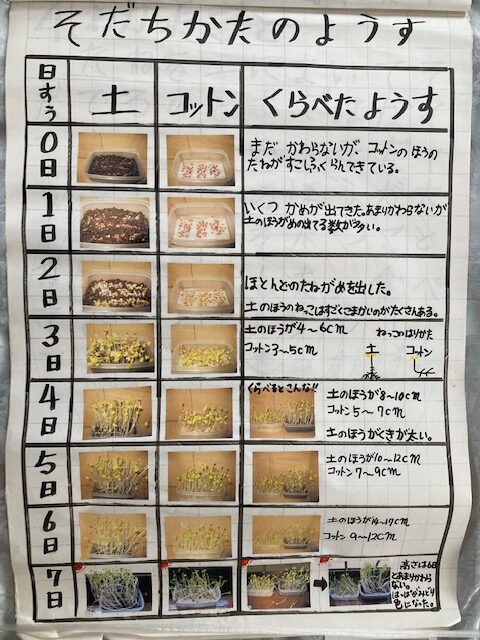 そだちかたのようす
日すう 土 コットン くらべたようす
0日 まだ かわらないが、コットンのほうの
たねがすこしふくらんできている。
1日 いくつ かめが出てきた。あまりかわらないが
土のほうがめの出てる数が多い。
2日 ほとんどのたねがめを出した。
土のほうのねっこはすごくこまかいのがたくさんある。
3日 土のほうが4〜6cm
コットン3〜5cm
ねっこのはりかた
土 コットン
4日 くらべるとこんな!!
土のほうが8〜10cm
コットン5〜7cm
土のほうがくきが太い。
5日 土のほうが10〜12cm
コットン7〜9cm
6日 土のほうが14〜17cm
コットン 9〜12cm
7日 高さは6日
とあまりかわら
ない。
はっぱがみどり
色になった。